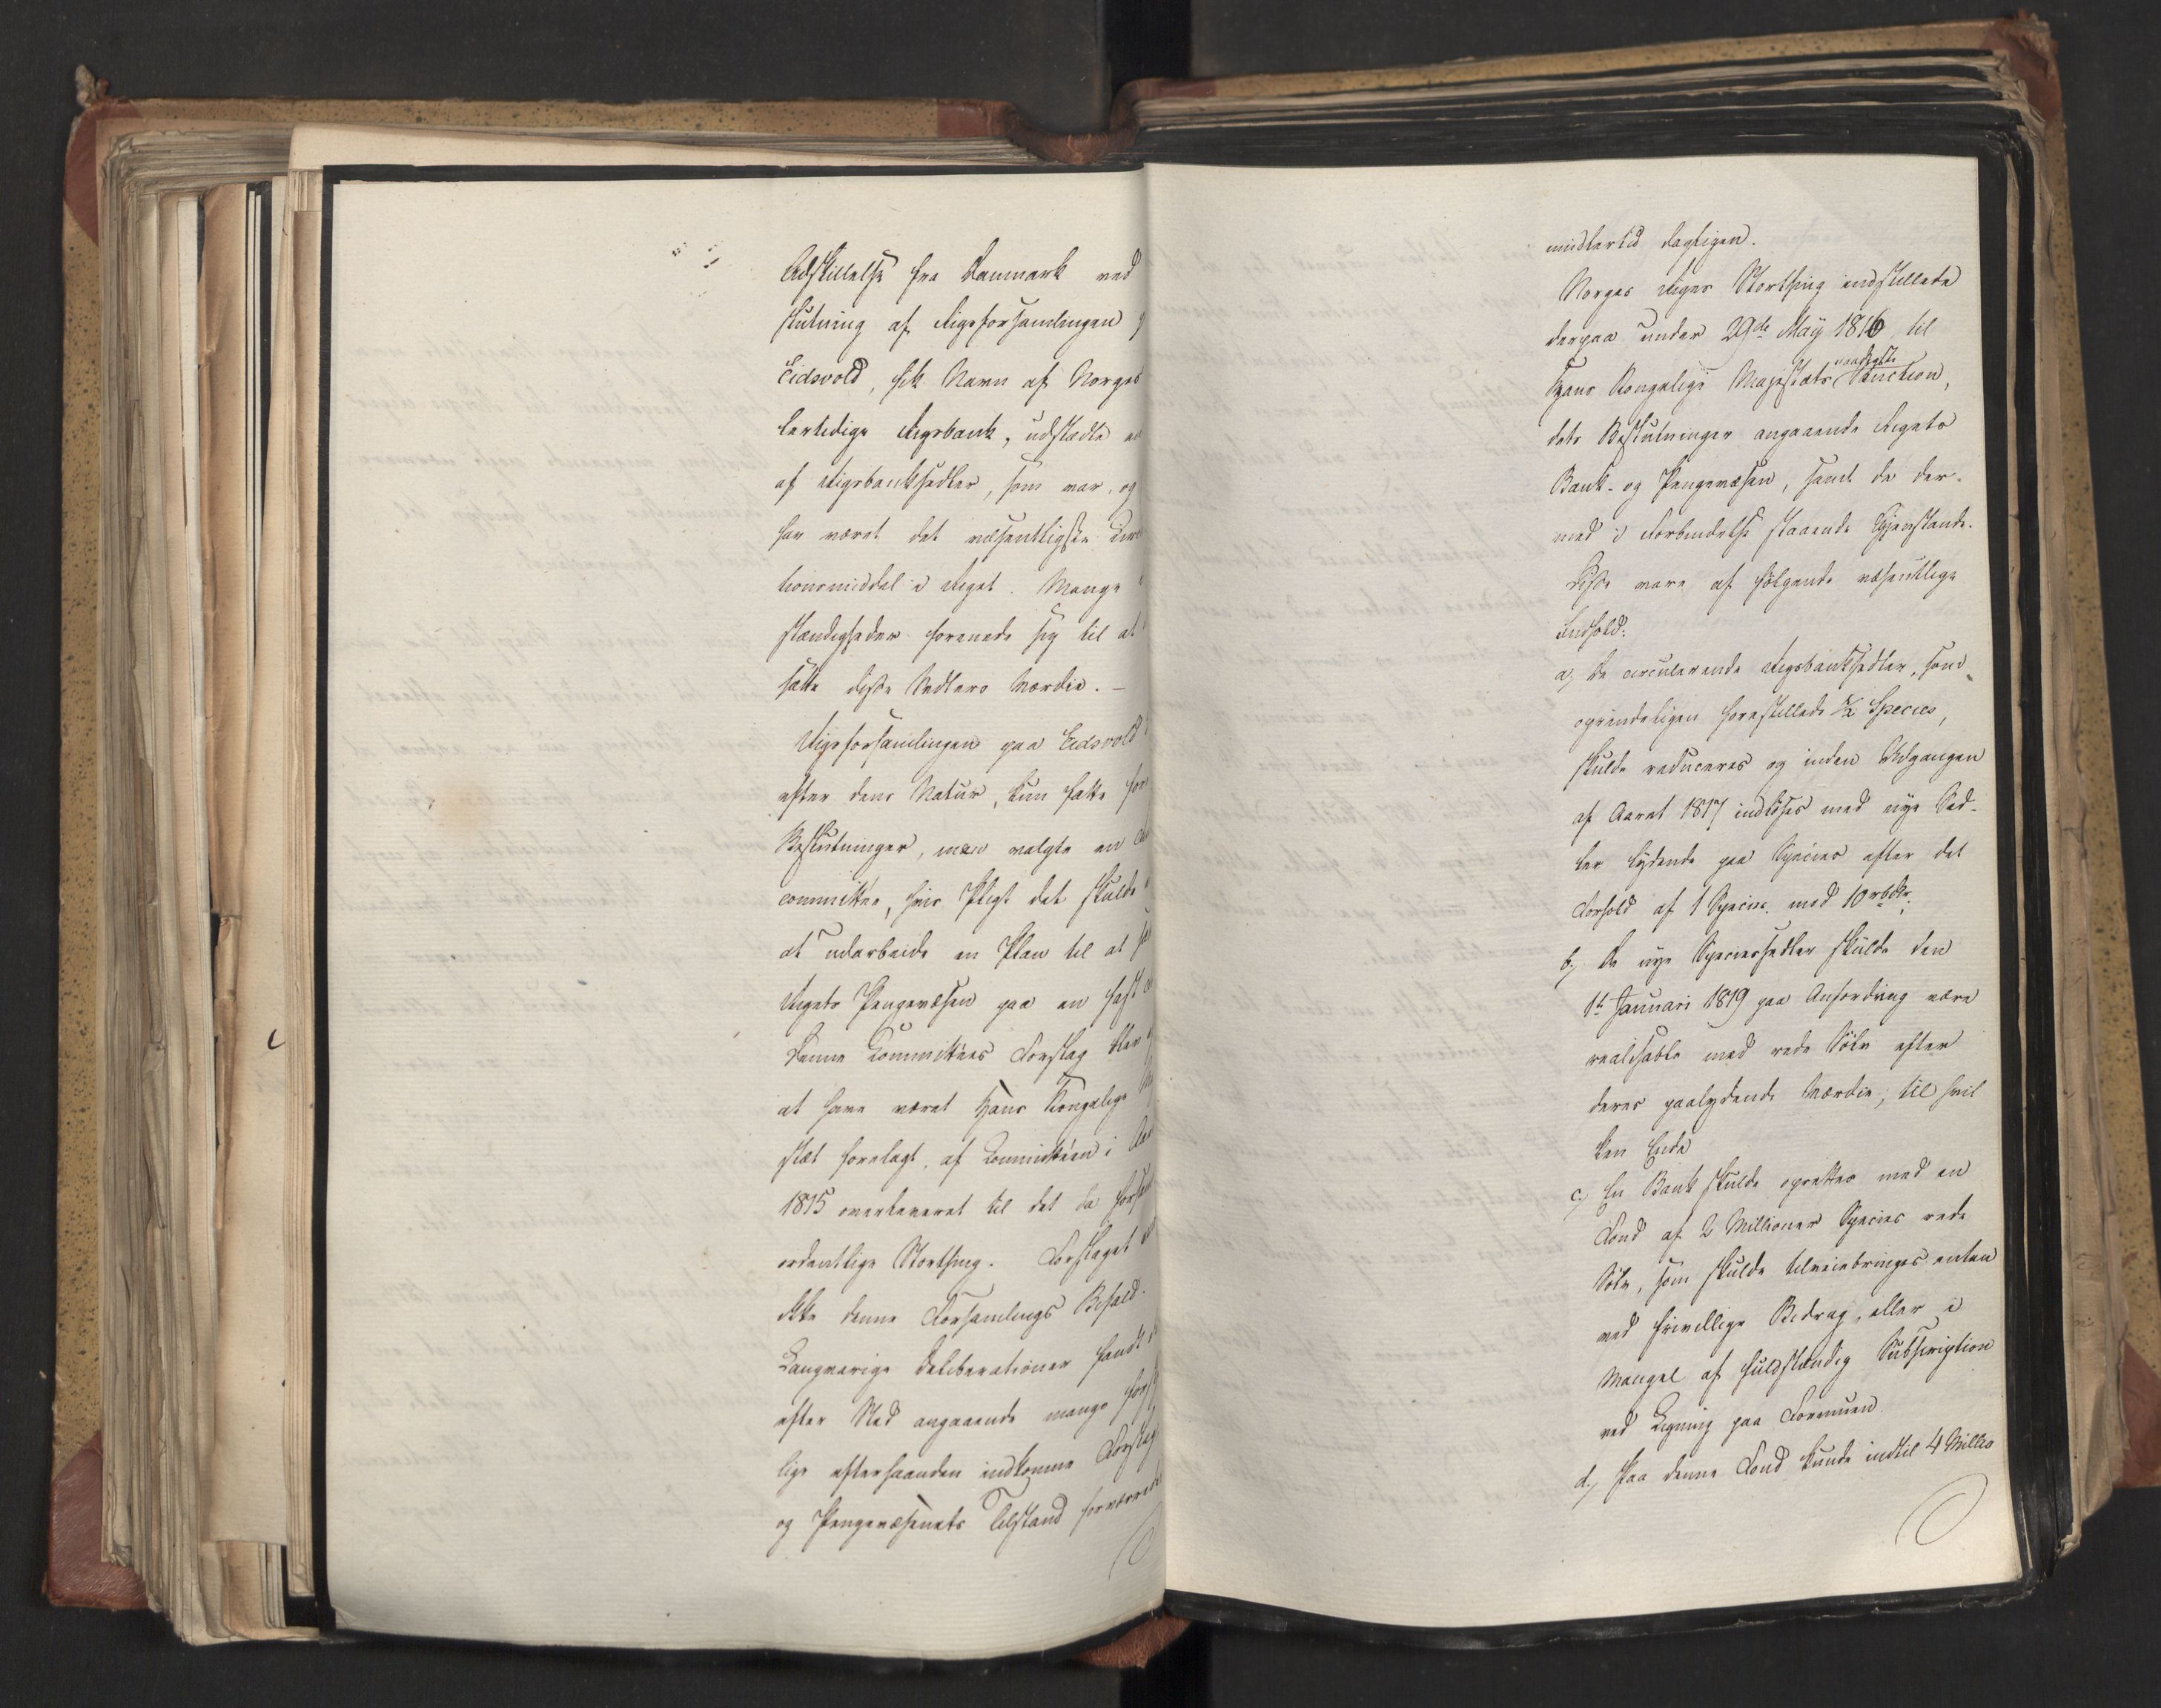 Adskillelse fra Danmark ved
slutning af Rigsforsamlingen
Eidsvold, fik Navn af Norges
lertidige Rigsbank, udstædte
af Rigsbanksedler, som var, og
har været det væsentligste Circ
tionsmiddel i Riget. Mange
stændigheder forenede sig til at
sætte disse Sedlers Værdie. –
Rigsforsamlingen paa Eidsvold
efter dens Natur, kun fatte for
Beslutninger, men valgte en
committee, hvis Pligt det skulde
at udarbeide en Plan til at
Rigets Pengevæsen paa en fast
Denne Committees Forslag blev
at have været Hans Kongelige
stæt forelagt, af Committeen i Aar
1815 overleveret til det da forsam
ordentlige Storthing. Forslaget
ikke denne Forsamlings Bifald.
Langvarige Deliberationer fandt
efter Sted angaaende mange forskj
lige efterhaanden indkomne Forslag
og Pengevæsenets Tilstand forværrede
midlertid dagligen.
Norges Riges Storthing indstillede
derpaa under 29de Maÿ 1816 til
naadigste
Hans Kongelige Majestæts Sanction,
dets Beslutninger angaaende Rigets
Bank- og Pengevæsen, samt de der-
med i Forbindelse staaende Gjenstande.
Disse vare af følgende væsentlige
Indhold:
a, De circulerende Rigsbanksedler, som
oprindeligen forestillede ½ Species,
skulde reduceres og inden Udgangen
af Aaret 1817 indløses med nye Sed-
ler lydende paa Species efter det
Forhold af 1 Specie. mod 10 rbdlr.
b, De nye Speciessedler skulde den
1te Januari 1819 paa Anfordring være
realisable med rede Sølv efter
deres paalydende Værdie; til hvil
ken Ende
c, En Bank skulde oprettes med en
Fond af 2 Millioner Species rede
Sølv, som skulde tilveiebringes enten
ved frivillige Bidrag, eller i
Mangel af fuldstændig Subscription
ved Ligning paa Formuen.
d, Paa denne Fond kunde indtil 4 Millio